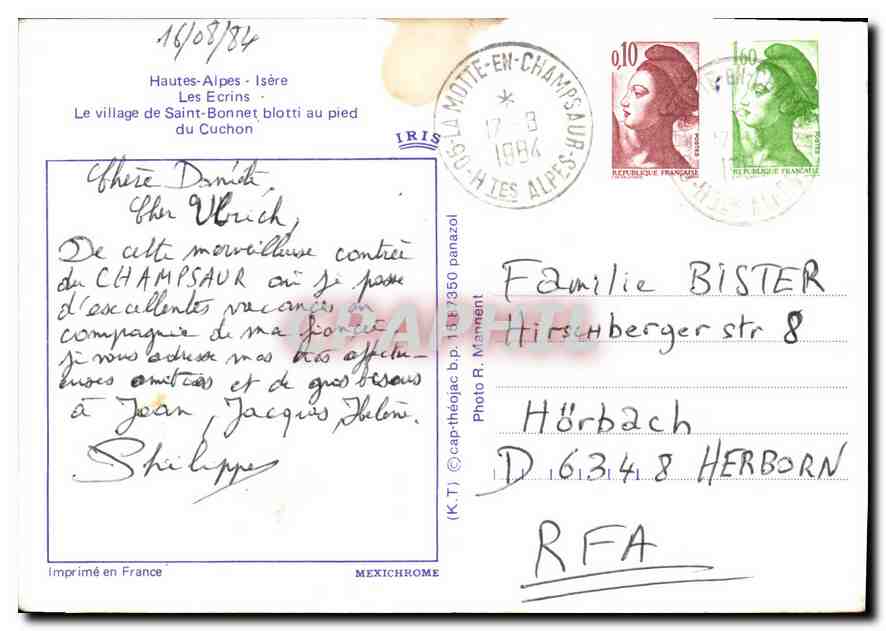 16/08/84
Hautes-Alpes - Isère
Les Ecrins
Le village de Saint-Bonnet blotti au pied
du Cuchon
IRIS
Chère Danièle,
Cher Ulrich,
De cette merveilleuse contrée
du CHAMPSAUR où je passe
d'excellentes vacances en
compagnie de ma fiancée
je vous adresse mes très affectu-
euses amitiés et de gros bisous
à Jean, Jacques, Hélène.
Philippe
Imprimé en France
MEXICHROME
(K.T) © cap-théojac b.p. 16 87350 panazol
Photo R. Mannent
CPAPHIL
05-LA MOTTE-EN-CHAMPSAUR-HTES ALPES
17-8
1984
0,10
POSTES
RÉPUBLIQUE FRANÇAISE
1,60
POSTES
RÉPUBLIQUE FRANÇAISE
Familie BISTER
Hirschberger str 8
Hörbach
D 6348 HERBORN
RFA